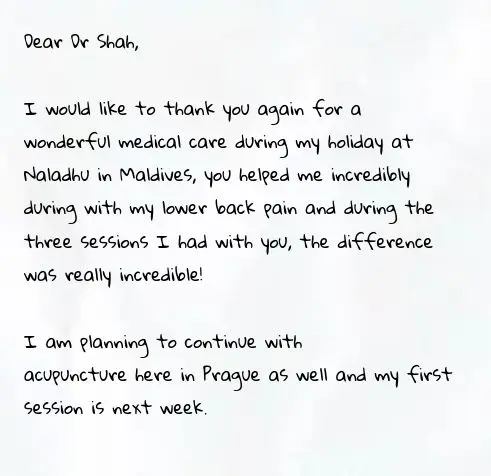 Dear Dr Shah,
I would like to thank you again for a
wonderful medical care during my holiday at
Naladhu in Maldives, you helped me incredibly
during with my lower back pain and during the
three sessions I had with you, the difference
was really incredible!
I am planning to continue with
acupuncture here in Prague as well and my first
session is next week.